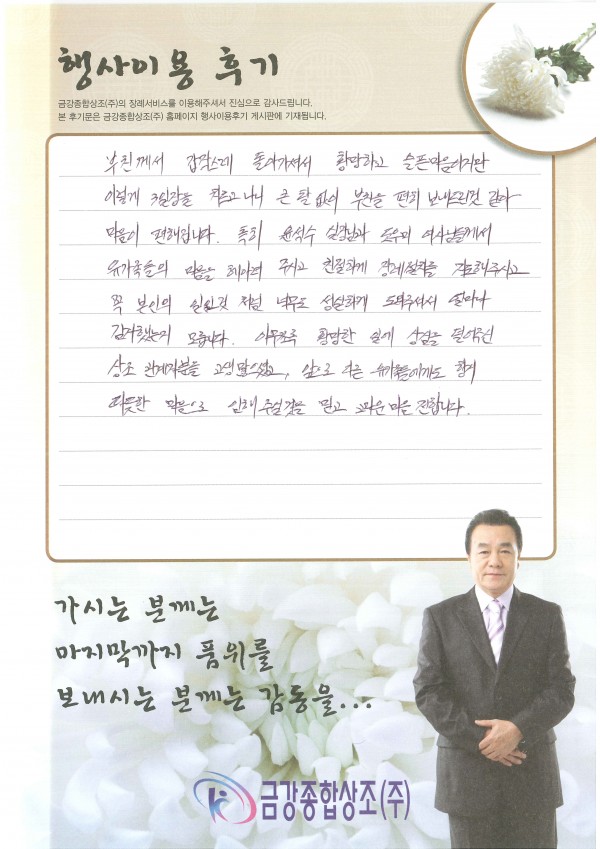 행사이용 후기
금강종합상조(주)의 장례서비스를 이용해주셔서 진심으로 감사드립니다.
본 후기문은 금강종합상조(주) 홈페이지 행사이용후기 게시판에 기재됩니다.
부친께서 갑작스레 돌아가셔서 황망하고 슬픈마음이지만
이렇게 3일장을 치르고 나니 큰 탈 없이 부친을 편히 보내드린것 같아
마음이 편해집니다. 특히 윤석수 실장님과 도우미 여사님들께서
유가족들의 마음을 헤아려 주시고 친절하게 장례절차를 진행해주시고
꼭 본인의 일인것 처럼 너무도 성실하게 도와주셔서 얼마나
감사했는지 모릅니다. 아무쪼록 황망한 일에 상심을 덜어주신
상조 관계자분들 고생많으셨고, 앞으로 다른 유가족들에게도 함께
따뜻한 마음으로 임해주실것을 믿고 고마운 마음 전합니다.
가시는 분께는
마지막까지 품위를
보내시는 분께는 감동을...
금강종합상조(주)